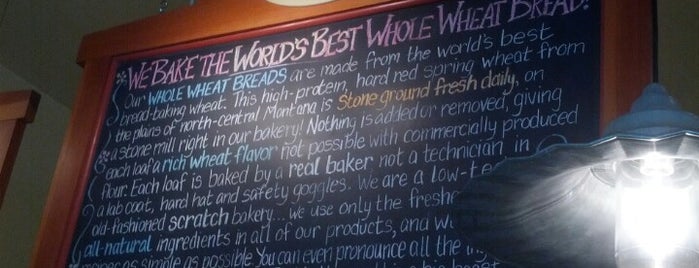 WE BAKE THE WORLD'S BEST WHOLE WHEAT BREAD!
Our WHOLE WHEAT BREADS are made from the world's best
bread-taking wheat. This high-protein, hard red spring wheat from
the plains of north-central Montana is stone ground fresh daily, on
a stone mill right in our bakery! Nothing is added or removed, giving
each loaf a rich wheat flavor not possible with commercially produced
flour. Each loaf is baked by a real baker not a technician in
a lab coat, hard hat and safety goggles. We are a low-te
old-fashioned scratch bakery... we use only the fresh
all-natural ingredients in all of our products, and
as simple as possible. You can even pronounce all the